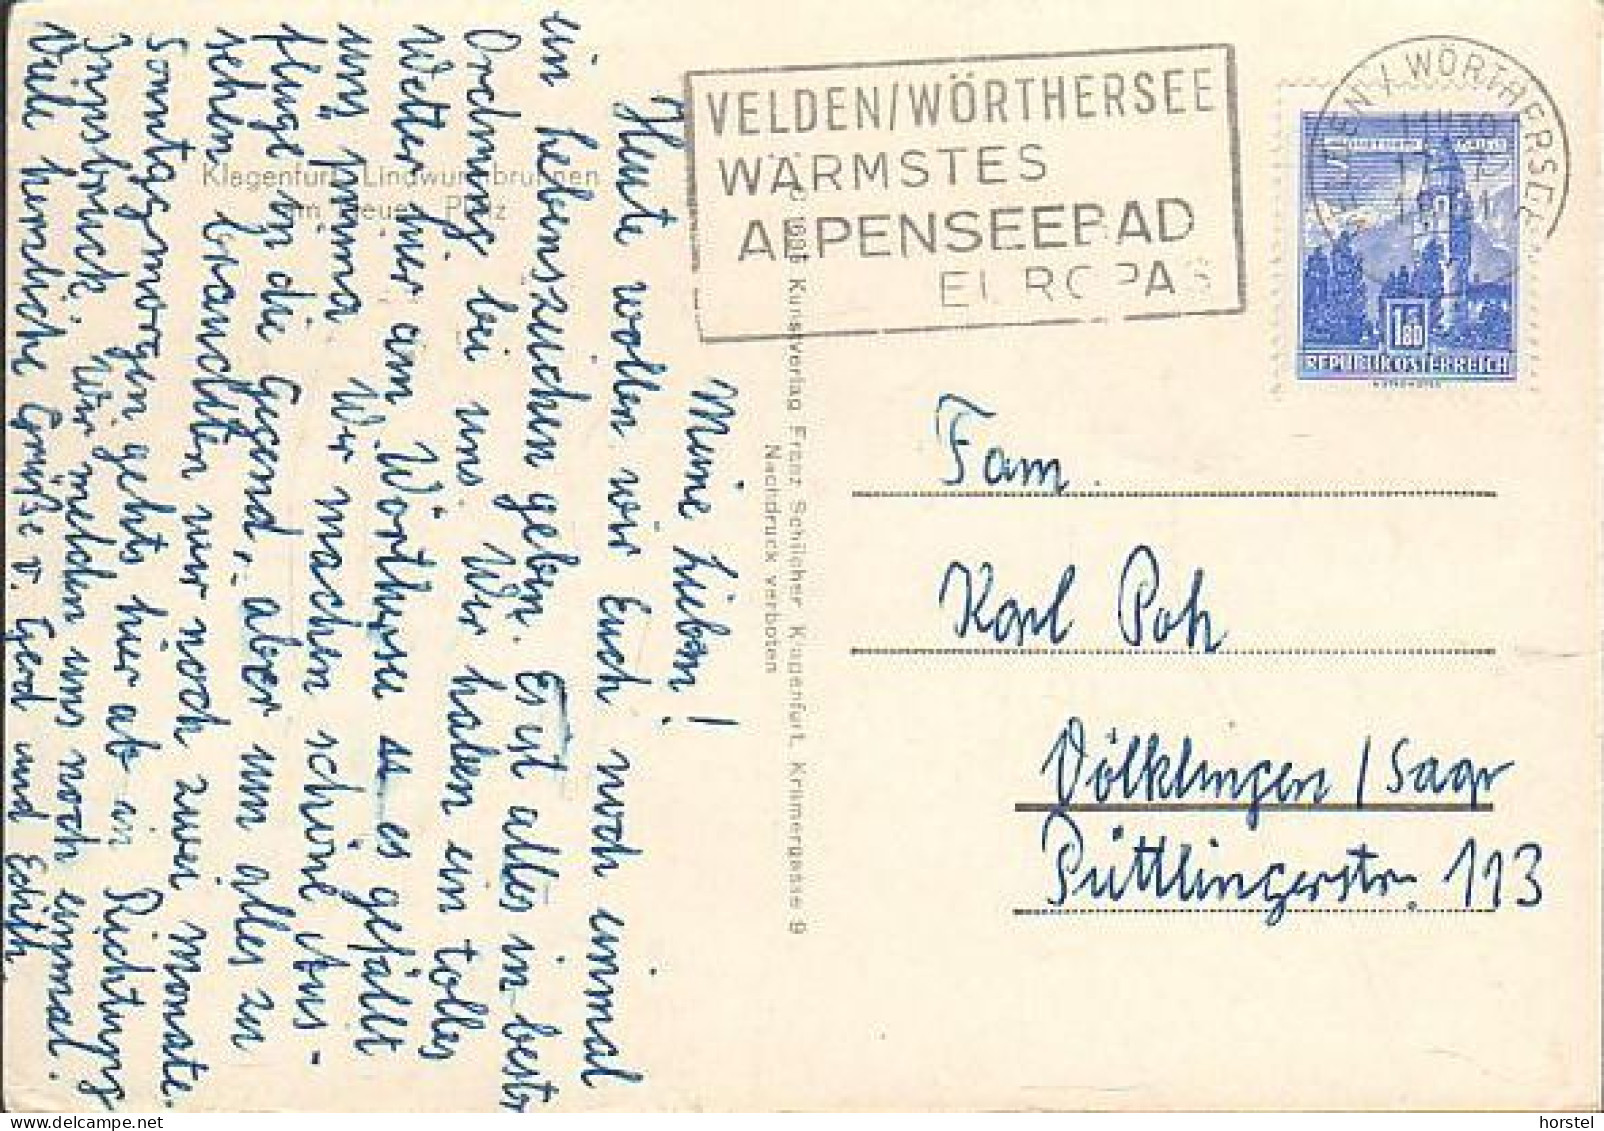 Meine Lieben!
Heute wollen wir Euch noch einmal
ein Lebenszeichen geben. Es ist alles in bester
Ordnung bei uns. Wir haben ein tolles
Wetter hier am Wörthersee u es gefällt
uns prima. Wir machen schöne Aus-
flüge in die Gegend, aber um alles zu
sehen brauchten wir noch zwei Monate.
Sonntagsmorgen gehts hier ab in Richtung
Innsbruck. Wir melden uns noch einmal.
Viele herzliche Grüße v. Gerd und Edith.
Klagenfurt, Lindwurmbrunnen
am Neuen Platz
Kunstverlag Franz Schilcher, Klagenfurt, Kramergasse 9
Nachdruck verboten
VELDEN/WÖRTHERSEE
WÄRMSTES
ALPENSEEBAD
EUROPAS
VELDEN / WÖRTHERSEE
1.80
REPUBLIK ÖSTERREICH
Fam.
Karl Poh
Völklingen/Saar
Püttlingerstr. 113
horstel